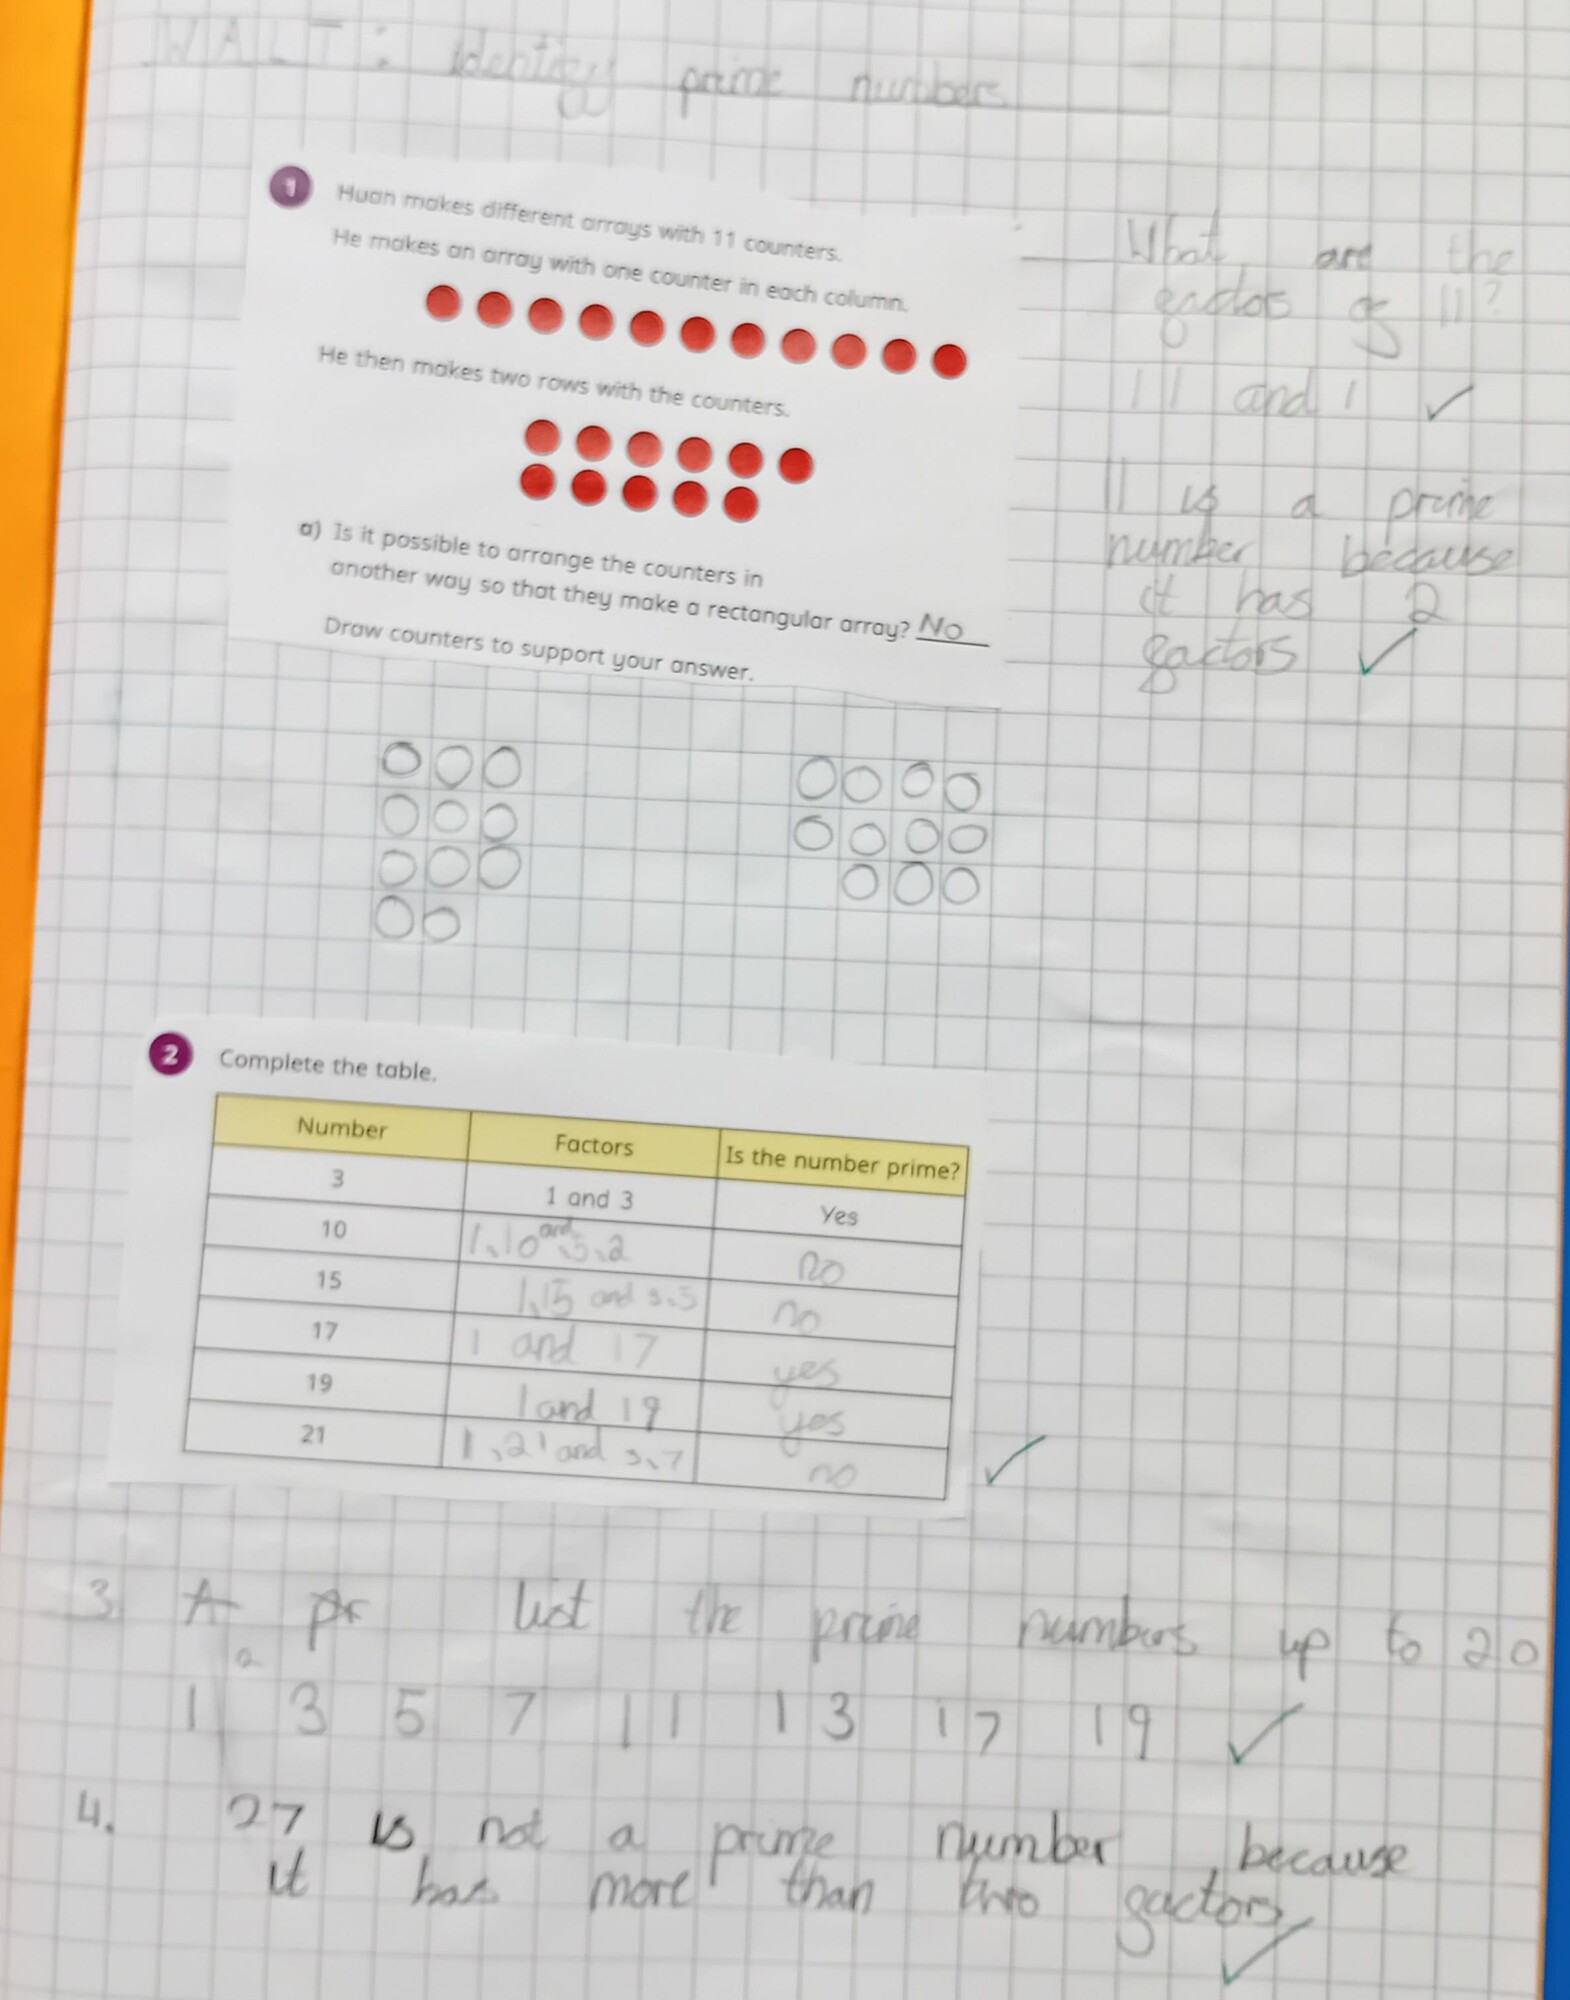 WALT: identify prime numbers
1
Huan makes different arrays with 11 counters.
He makes an array with one counter in each column.
He then makes two rows with the counters.
a) Is it possible to arrange the counters in
another way so that they make a rectangular array? No
Draw counters to support your answer.
What are the
factors of 11?
11 and 1 ✓
11 is a prime
number because
it has 2
factors ✓
2 Complete the table.
Number Factors Is the number prime?
3 1 and 3 Yes
10 1, 10 and 5, 2 no
15 1, 15 and 3, 5 no
17 1 and 17 yes
19 1 and 19 yes
21 1, 21 and 3, 7 no
✓
3. A pr list the prime numbers up to 20
1 2 3 5 7 11 13 17 19 ✓
4. 27 is not a prime number, because
it has more than two factors ✓